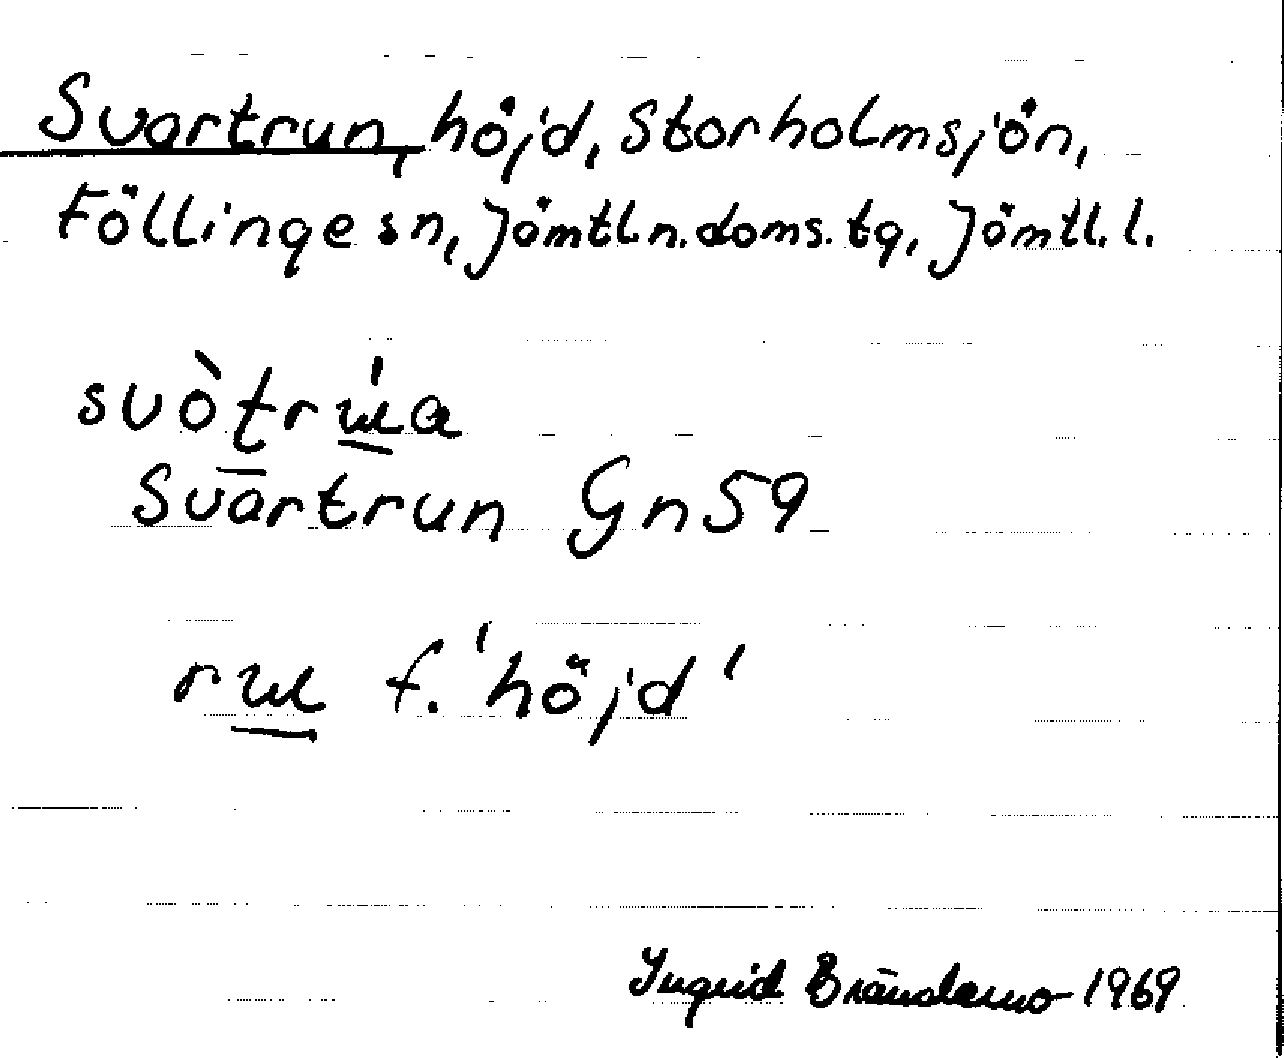 Svartrun, höjd, Storholmsjön,
Föllinge sn, Jämtl. n. doms. tg, Jämtl. l.
Svartrun Gn 59
f. 'höjd'
Ingrid Brändemo 1969